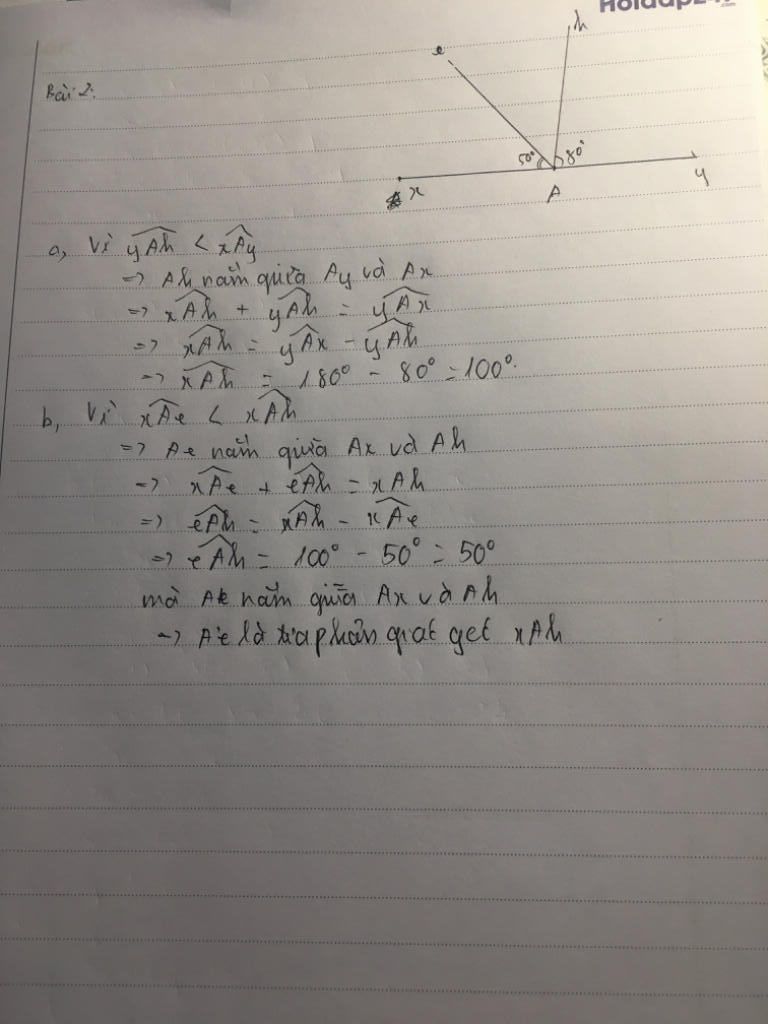 Bài 2.
e
h
50°
80°
x
A
y
a, Vì yAh < xAy
=> Ah nằm giữa Ay và Ax
=> xAh + yAh = yAx
=> xAh = yAx - yAh
=> xAh = 180° - 80° = 100°.
b, Vì xAe < xAh
=> Ae nằm giữa Ax và Ah
=> xAe + eAh = xAh
=> eAh = xAh - xAe
=> eAh = 100° - 50° = 50°
mà Ae nằm giữa Ax và Ah
=> Ae là tia phân giác xAh